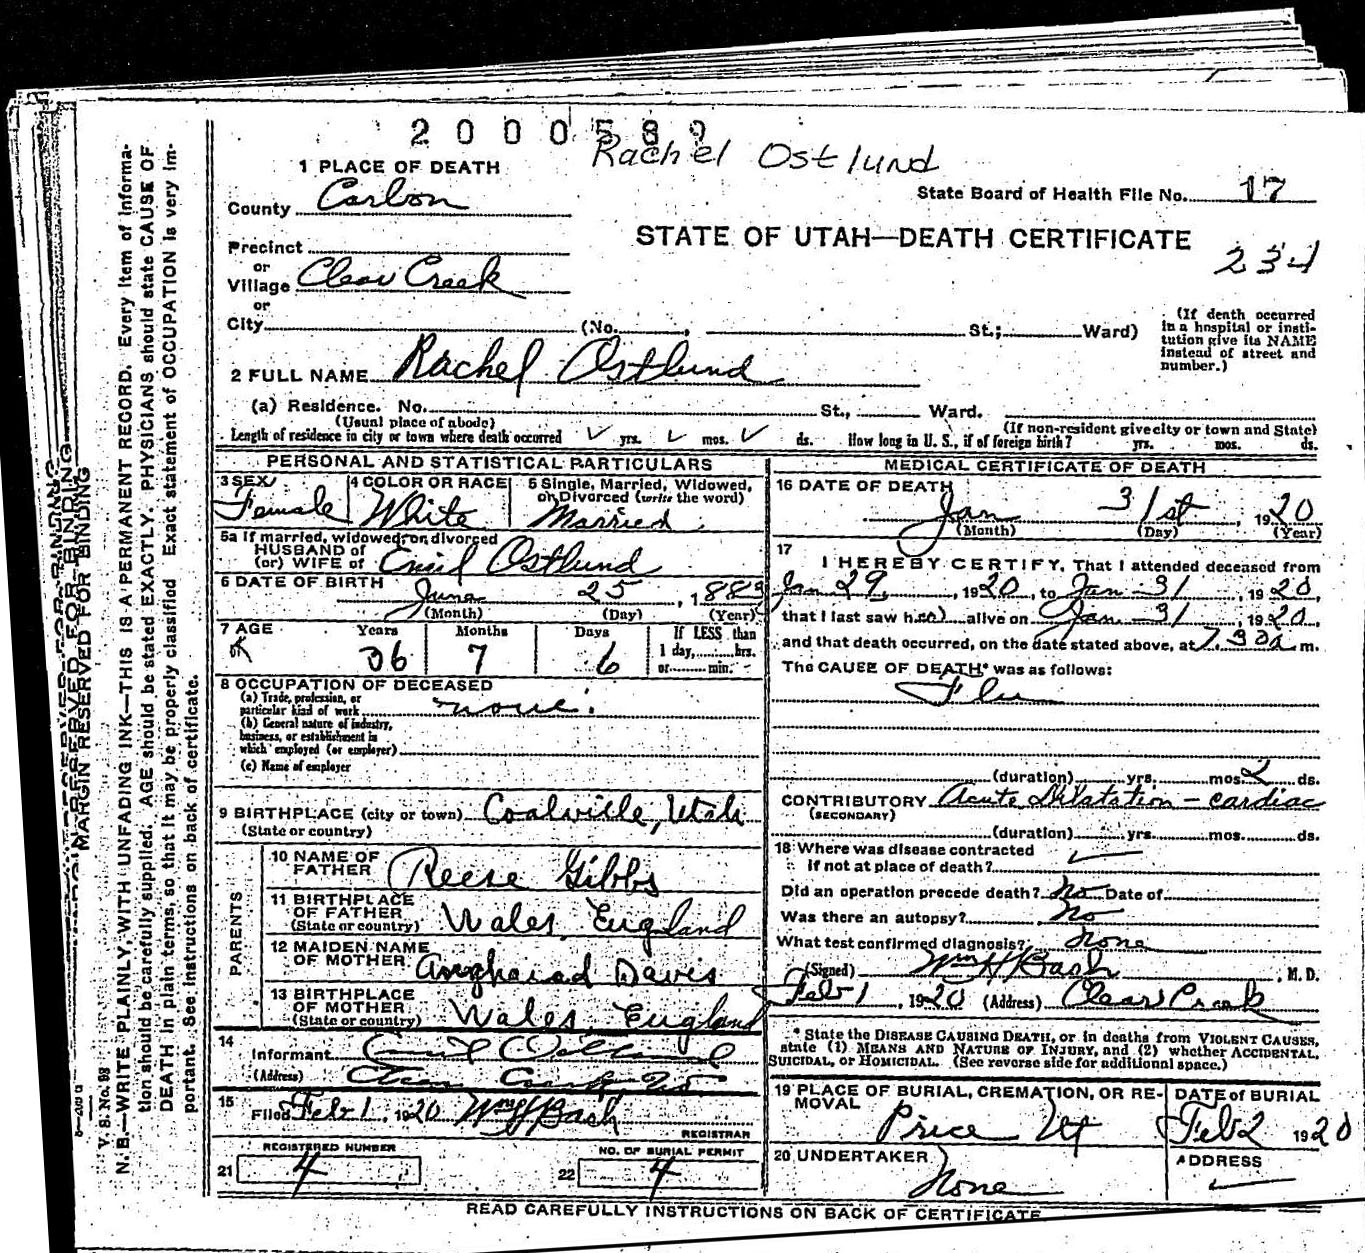 2000589
Rachel Ostlund
1 PLACE OF DEATH
State Board of Health File No. 17
County Carbon
STATE OF UTAH—DEATH CERTIFICATE
234
Precinct
or
Village Clear Creek
or
City (No. , St.; Ward)
(If death occurred
in a hospital or insti-
tution give its NAME
instead of street and
number.)
2 FULL NAME Rachel Ostlund
(a) Residence. No. St., Ward.
(Usual place of abode) (If non-resident give city or town and State)
Length of residence in city or town where death occurred yrs. mos. ds. How long in U. S., if of foreign birth? yrs. mos. ds.
PERSONAL AND STATISTICAL PARTICULARS
3 SEX
Female
4 COLOR OR RACE
White
5 Single, Married, Widowed,
or Divorced (write the word)
Married
5a If married, widowed, or divorced
HUSBAND of
(or) WIFE of Emil Ostlund
6 DATE OF BIRTH
June 25, 1883
(Month) (Day) (Year)
7 AGE Years Months Days If LESS than
1 day, hrs.
or min.
36 7 6
8 OCCUPATION OF DECEASED
(a) Trade, profession, or
particular kind of work none.
(b) General nature of industry,
business, or establishment in
which employed (or employer)
(c) Name of employer
9 BIRTHPLACE (city or town) Coalville, Utah
(State or country)
PARENTS
10 NAME OF
FATHER Reese Gibbs
11 BIRTHPLACE
OF FATHER
(State or country) Wales, England
12 MAIDEN NAME
OF MOTHER Angharad Davis
13 BIRTHPLACE
OF MOTHER
(State or country) Wales, England
14
Informant Emil
(Address) Clear Creek
15
Filed Feb 1 1920 Wm H Bash
REGISTRAR
REGISTERED NUMBER
21 4
NO. OF BURIAL PERMIT
22 4
MEDICAL CERTIFICATE OF DEATH
16 DATE OF DEATH
Jan 31st, 1920
(Month) (Day) (Year)
17
I HEREBY CERTIFY, That I attended deceased from
Jan 29, 1920, to Jan - 31, 1920,
that I last saw her alive on Jan - 31, 1920,
and that death occurred, on the date stated above, at 7.30a m.
The CAUSE OF DEATH* was as follows:
Flu
(duration) yrs. mos. 2 ds.
CONTRIBUTORY Acute Dilatation - cardiac
(SECONDARY)
(duration) yrs. mos. ds.
18 Where was disease contracted
if not at place of death?
Did an operation precede death? No Date of
Was there an autopsy? No
What test confirmed diagnosis? None
(Signed) Wm H Bash, M. D.
Feb 1, 1920 (Address) Clear Creek
* State the DISEASE CAUSING DEATH, or in deaths from VIOLENT CAUSES,
state (1) MEANS AND NATURE OF INJURY, and (2) whether ACCIDENTAL,
SUICIDAL, or HOMICIDAL. (See reverse side for additional space.)
19 PLACE OF BURIAL, CREMATION, OR RE-
MOVAL
Price Ut
DATE of BURIAL
Feb 2 1920
20 UNDERTAKER
None
ADDRESS
READ CAREFULLY INSTRUCTIONS ON BACK OF CERTIFICATE
MARGIN RESERVED FOR BINDING
V. S. No. 98
N. B.—WRITE PLAINLY, WITH UNFADING INK—THIS IS A PERMANENT RECORD. Every item of informa-
tion should be carefully supplied. AGE should be stated EXACTLY. PHYSICIANS should state CAUSE OF
DEATH in plain terms, so that it may be properly classified. Exact statement of OCCUPATION is very im-
portant. See instructions on back of certificate.